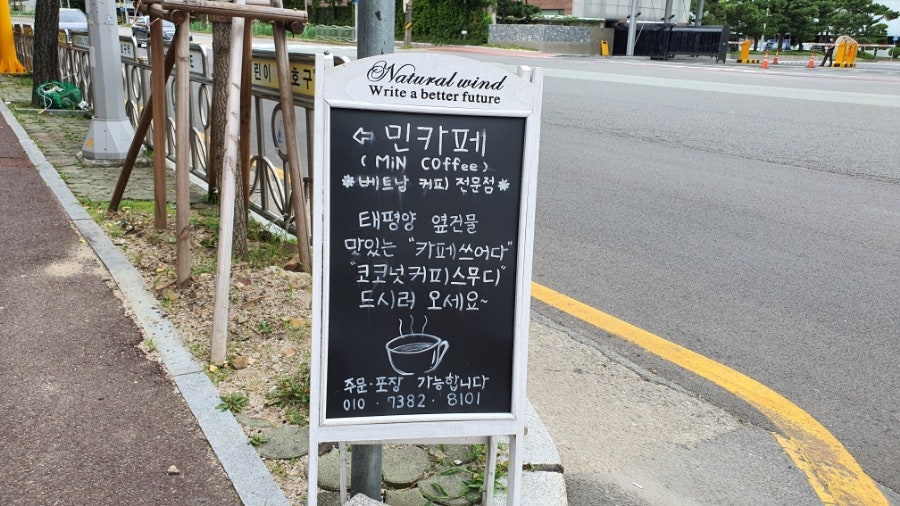 Natural wind
Write a better future
⇦ 민카페
(MiN COffee)
*베트남 커피 전문점*
태평양 옆건물
맛있는 "카페쓰어다"
"코코넛커피스무디"
드시러 오세요~
주문·포장 가능합니다
010 · 7382 · 8101